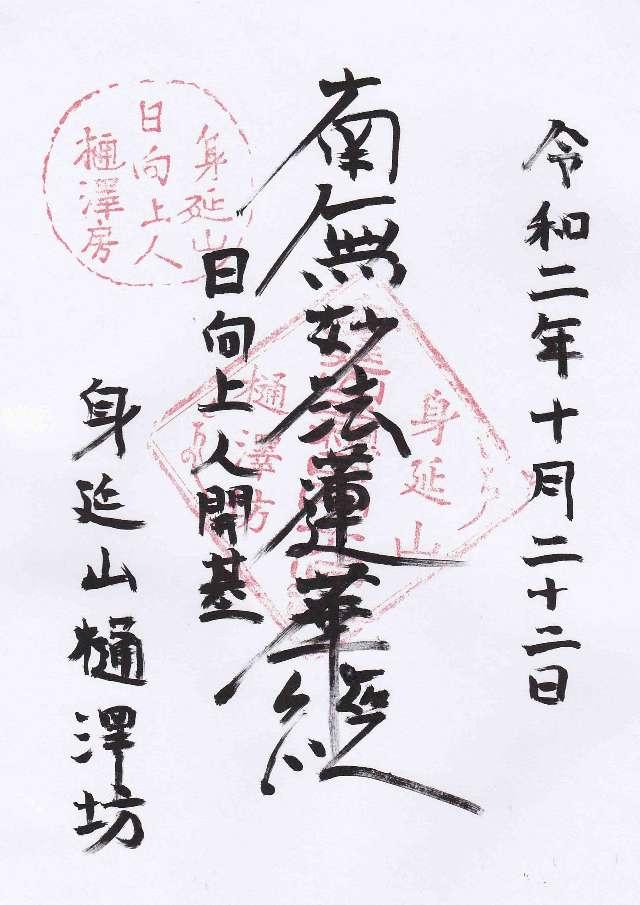 令和二年十月二十二日
南無妙法蓮華経
日向上人開基
身延山樋澤坊
身延山
日向上人
樋澤房
身延山
樋澤坊